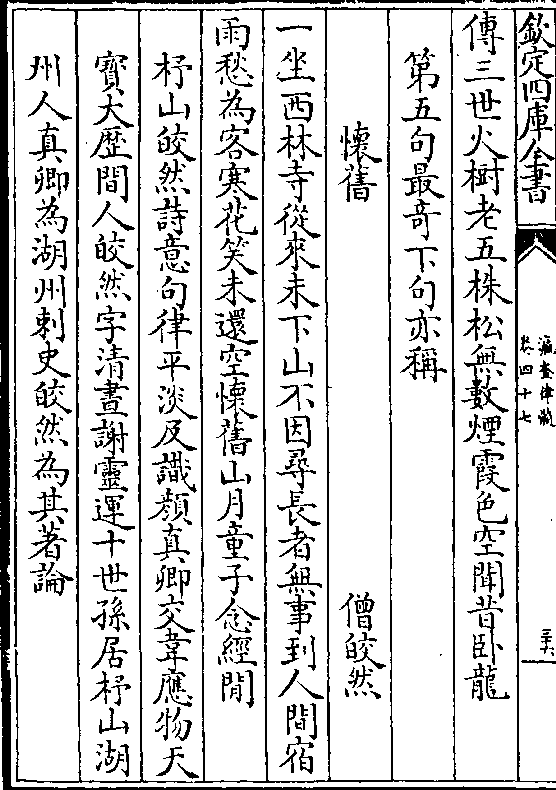 欽定四庫全書
瀛奎律髓
卷四十七
三六
傳三世火樹老五株松無數煙霞色空聞昔卧龍
第五句最竒下句亦稱
懷舊　僧皎然
一坐西林寺從來未下山不因尋長者無事到人間宿
雨愁為客寒花笑未還空懷舊山月童子念經閒
杼山皎然詩意句律平淡及識顔真卿交韋應物天
寳大歴間人皎然字清晝謝靈運十世孫居杼山湖
州人真卿為湖州刺史皎然為其著論